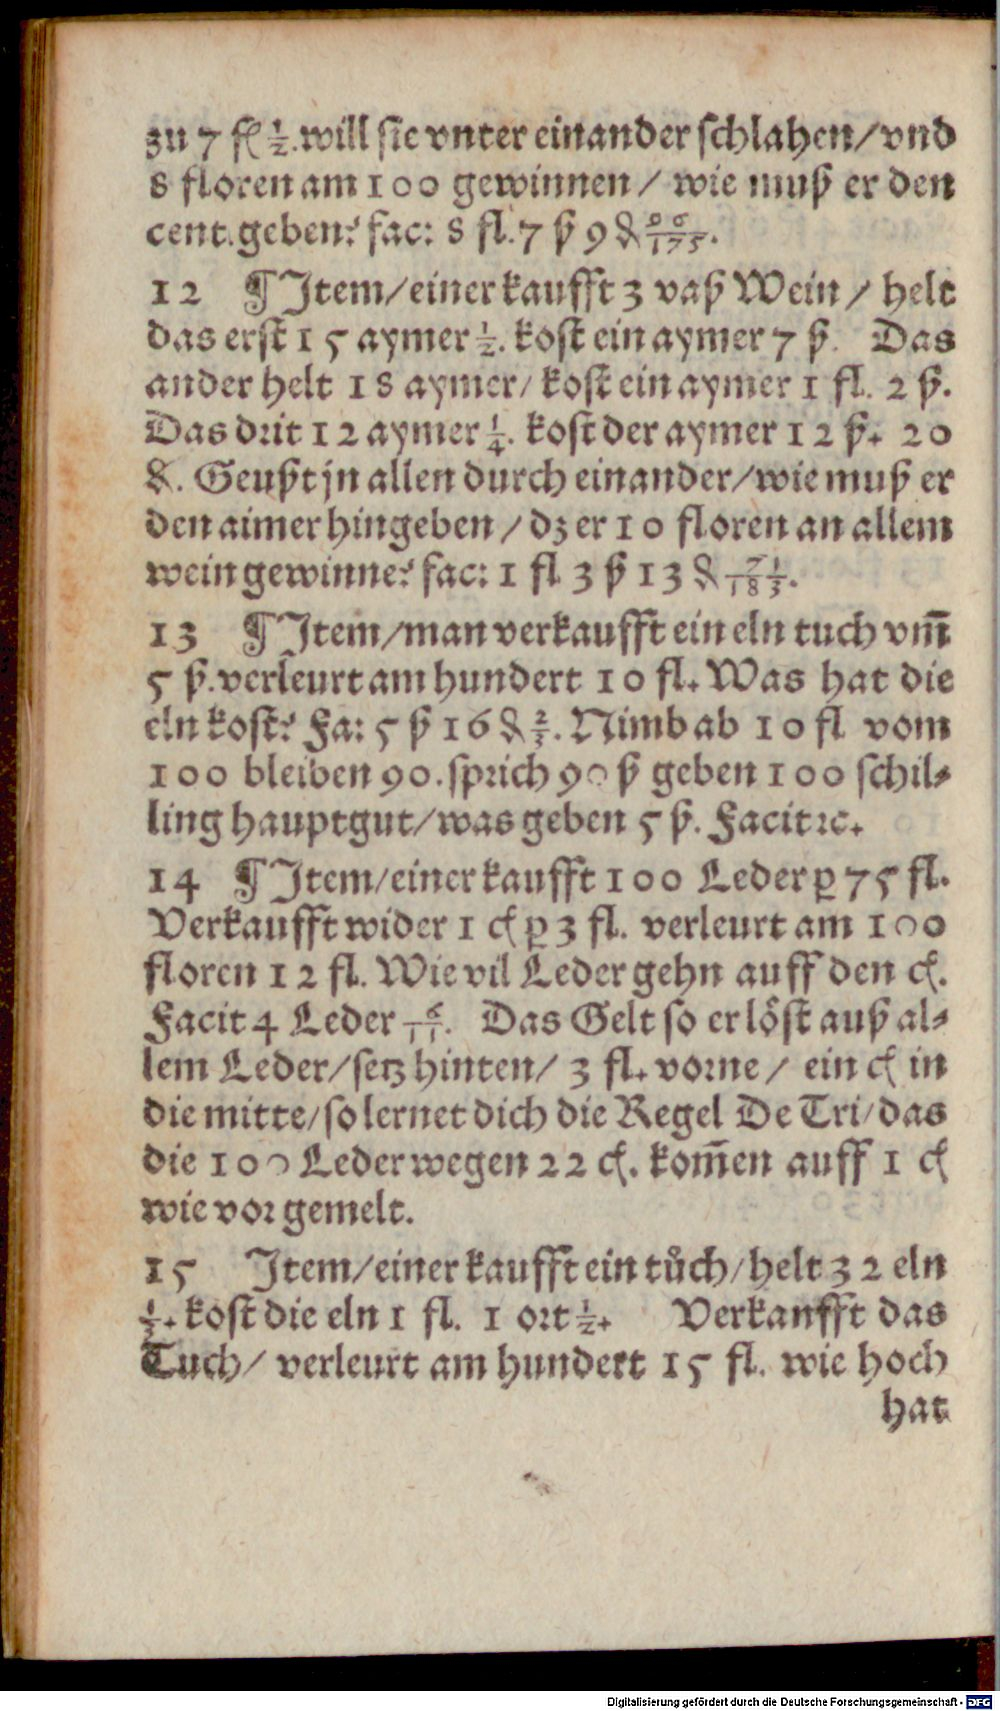 zu 7 fl ½. will sie vnter einander schlahen/vnd
8 floren am 100 gewinnen / wie muß er den
cent. geben? fac: 8 fl. 7 ß 9 ₰
12 ¶ Item/einer kaufft 3 vaß Wein / helt
das erst 15 aymer ½. kost ein aymer 7 ß. Das
ander helt 18 aymer/ kost ein aymer 1 fl. 2 ß.
Das drit 12 aymer ¼. kost der aymer 12 ß. 20
₰. Geußt jn allen durch einander/wie muß er
den aimer hingeben / dz er 10 floren an allem
wein gewinne? fac: 1 fl 3 ß 13 ₰ 71/183.
13 ¶ Item/man verkaufft ein eln tuch vm̃
5 ß. verleurt am hundert 10 fl. Was hat die
eln kost? Fa: 5 ß 16 ₰ ⅔. Nimb ab 10 fl vom
100 bleiben 90. sprich 90 ß geben 100 schil⸗
ling hauptgut/was geben 5 ß. Facit ꝛc.
14 ¶ Item/einer kaufft 100 Leder ꝑ 75 fl.
Verkaufft wider 1 ct ꝑ 3 fl. verleurt am 100
floren 12 fl. Wie vil Leder gehn auff den ct.
Facit 4 Leder 6/11. Das Gelt so er löst auß al⸗
lem Leder/setz hinten/ 3 fl. vorne / ein ct in
die mitte/so lernet dich die Regel De Tri/das
die 100 Leder wegen 22 ct. kom̃en auff 1 ct
wie vor gemelt.
15 Item/einer kaufft ein tůch/helt 32 eln
⅓. kost die eln 1 fl. 1 ort ½. Verkaufft das
Tuch/ verleurt am hundert 15 fl. wie hoch
hat
Digitalisierung gefördert durch die Deutsche Forschungsgemeinschaft - DFG